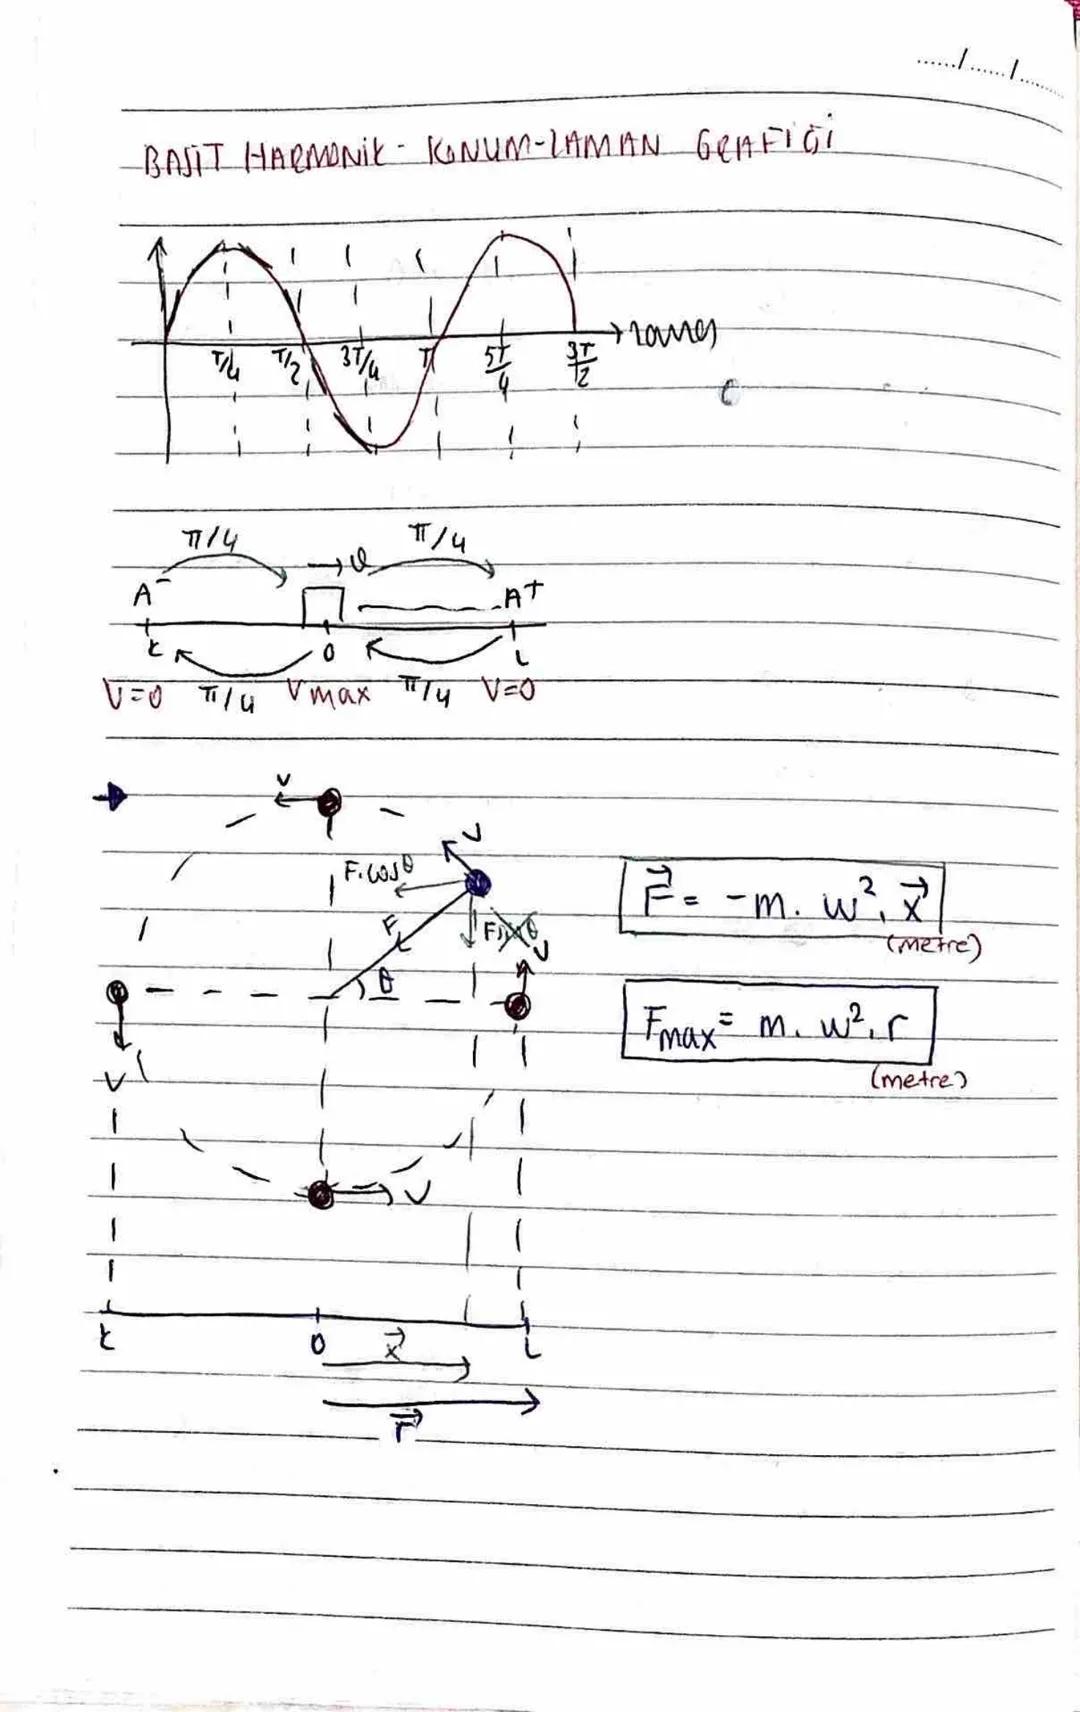 ...../...../.....
BASİT HARMONİK - KONUM-ZAMAN GRAFİĞİ
T/4 T/2 3T/4 T 5T/4 3T/2 zaman
π/4 → v π/4
A⁻ A⁺
K O L
V=0 π/4 Vmax π/4 V=0
V
V
F.cosθ
F
F.sinθ
V
θ
V
V
K O L
x⃗
r⃗
F⃗ = -m. w². x⃗
(metre)
Fmax = m. w². r
(metre)